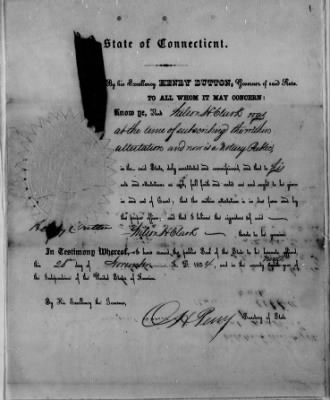 State of Connecticut.
By his Excellency HENRY DUTTON, Governor of said State.
TO ALL WHOM IT MAY CONCERN:
Know ye, That H. Clark was
at the time of subscribing the within
attestation and now is a Notary Public
in the said State, duly constituted and commissioned; and that to his
acts and attestations as such, full faith and credit are and ought to be given
in and out of Court; and that the within attestation is in due form and by
the proper officer; and that I believe the signature of said
H. Clark thereto to be genuine
Henry Dutton
In Testimony Whereof, I have caused the public Seal of the State to be hereunto affixed, this
25 day of November A. D. 1854, and in the seventy ninth year of
the Independence of the United States of America.
By His Excellency the Governor,
Perry Secretary of State